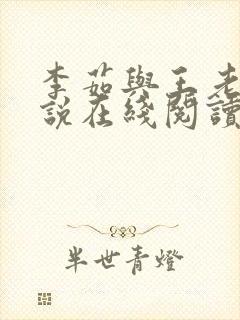 李茹與王老
說在綫閱讀
半世青燈